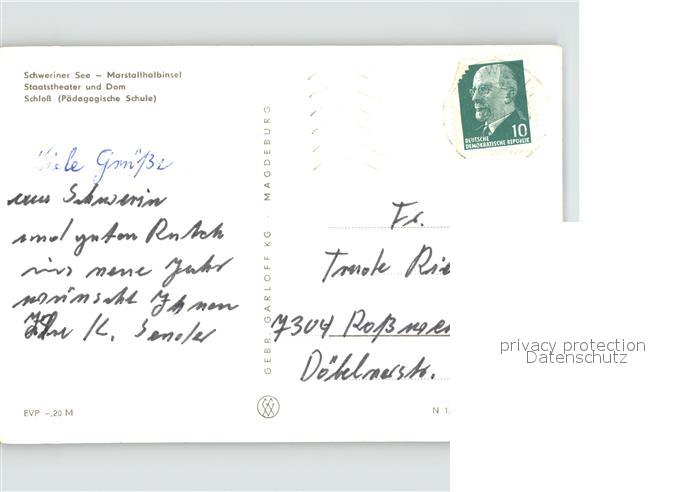 Schweriner See – Marstallhalbinsel
Staatstheater und Dom
Schloß (Pädagogische Schule)
Viele Grüße
aus Schwerin
und guten Rutsch
ins neue Jahr
wünscht Ihnen
Ihr K. Sender
EVP –,20 M
GEBR. GARLOFF KG · MAGDEBURG
10
DEUTSCHE
DEMOKRATISCHE REPUBLIK
Fr.
Trude
7304 Roßwein
Döbelnerstr.
N 1/
privacy protection
Datenschutz